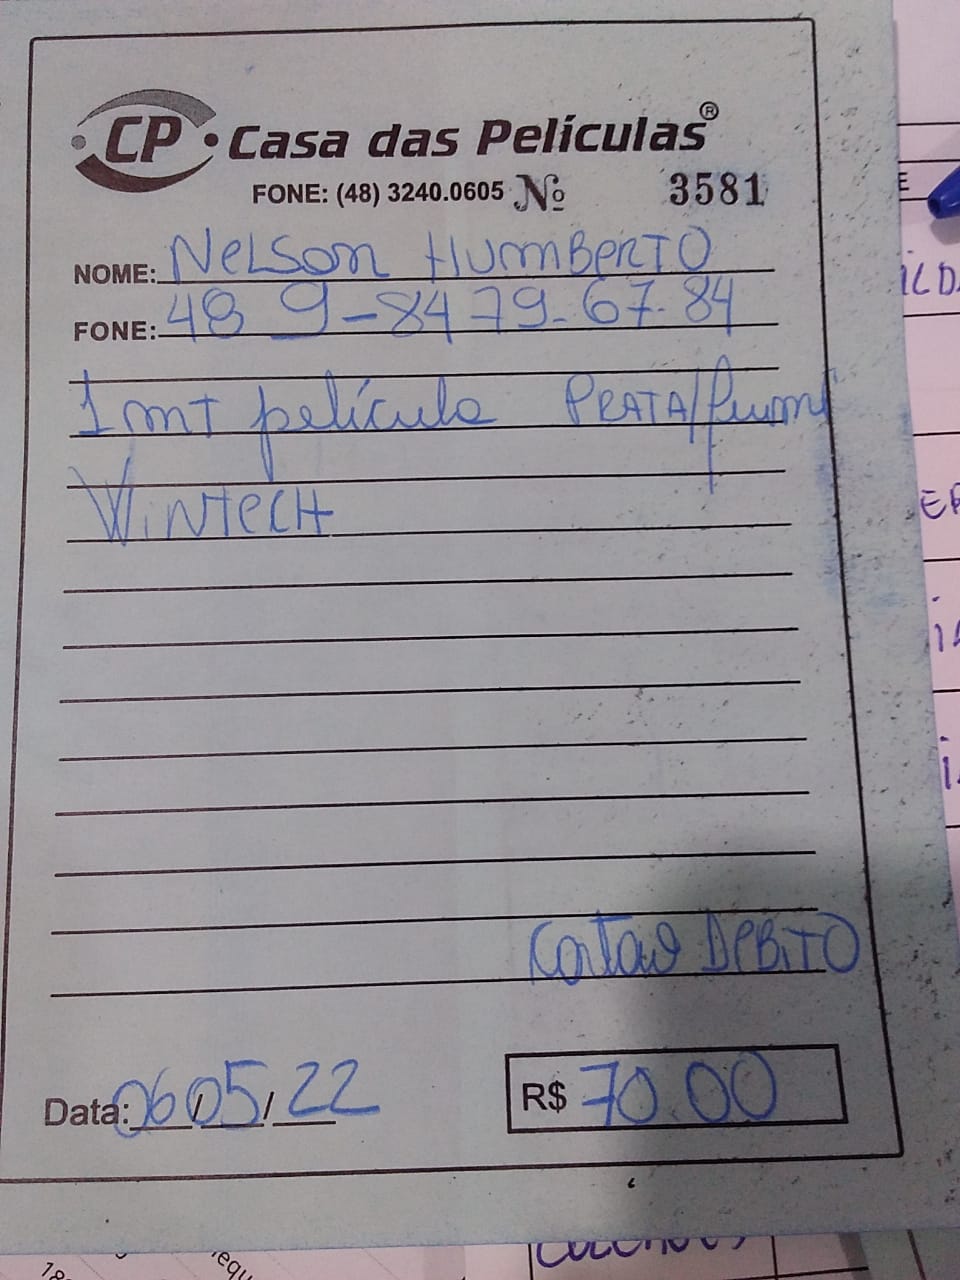 CP Casa das Películas®
FONE: (48) 3240.0605 Nº 3581
NOME: Nelson Humberto
FONE: 48 9-8479-67-84
1 mt película PRATA/fume
WiNTECH
Cartao DEBiTO
Data: 06/05/22
R$ 70.00